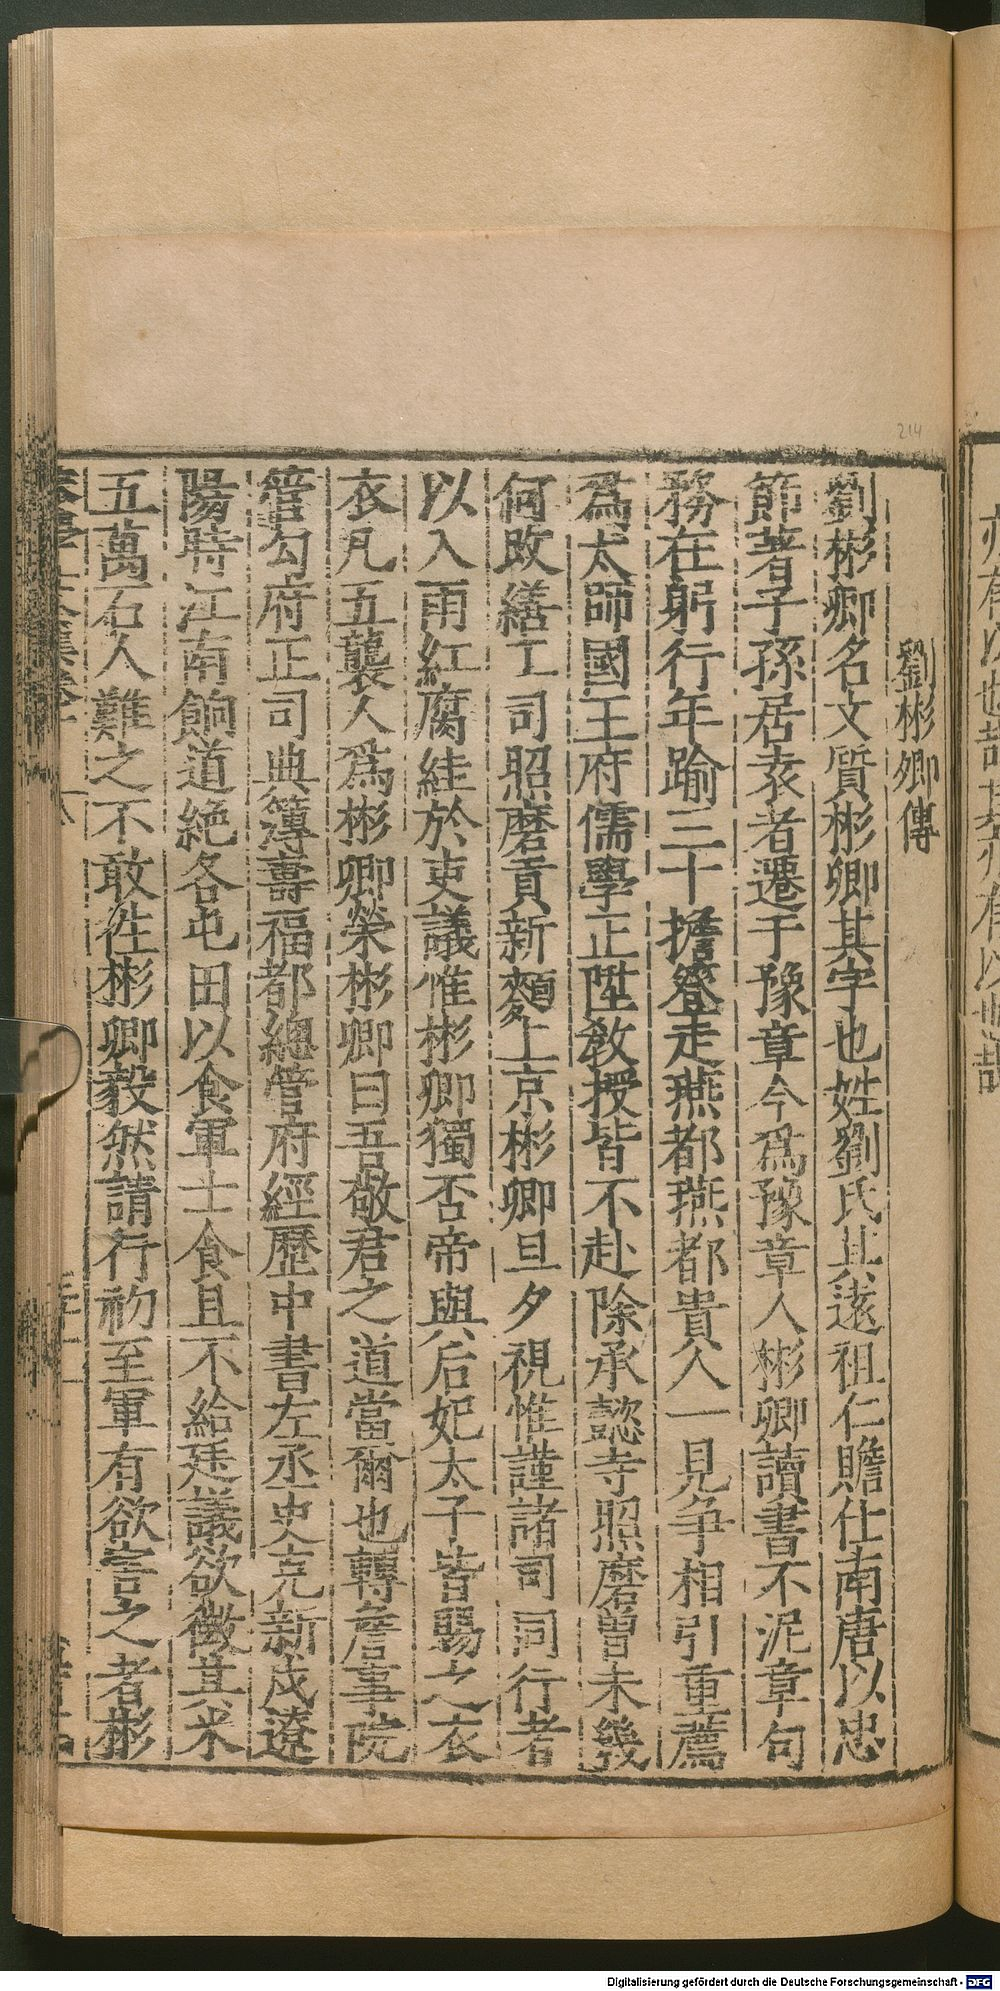 214
劉彬卿傳
劉彬卿名文質彬卿其字也姓劉氏其遠祖仁贍仕南唐以忠
節著子孫居袁者遷于豫章今爲豫章人彬卿讀書不泥章句
務在躬行年踰三十擔簦走燕都燕都貴人一見爭相引重薦
爲太師國王府儒學正陞教授皆不赴除承懿寺照磨曽未幾
何改繕工司照磨貢新麪上京彬卿旦夕視惟謹諸司同行者
以入雨紅腐絓於吏議惟彬卿獨否帝與后妃太子皆賜之衣
衣凡五襲人爲彬卿榮彬卿曰吾敬君之道當爾也轉詹事院
管勾府正司典簿壽福都總管府經歷中書左丞史克新戍遼
陽時江南餉道絶各屯田以食軍士食且不給廷議欲徵其米
五萬石人難之不敢往彬卿毅然請行初至軍有欲害之者彬
Digitalisierung gefördert durch die Deutsche Forschungsgemeinschaft - DFG